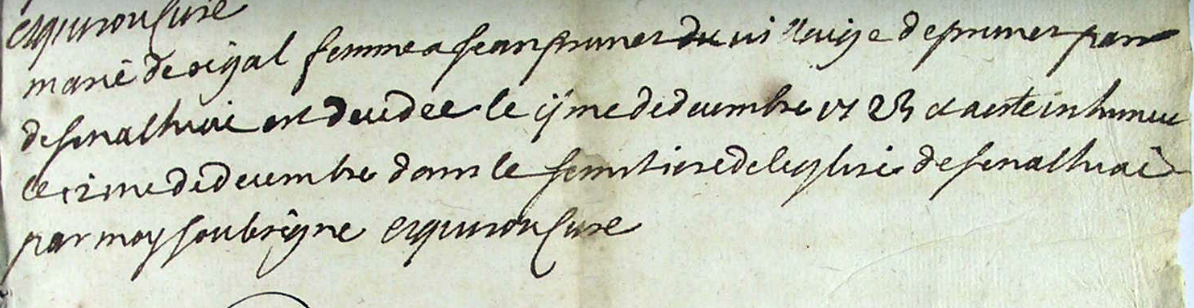 esquirou Cure
marie de rigal femme a jean pruner du vilaige de pruner parr
de senalhiac est decedee le ij me de decembre 1723 et a este inhumee
le 12 me de decembre dans le semitiere de leglise de senalhiac
par moy soubsigne esquirou Cure